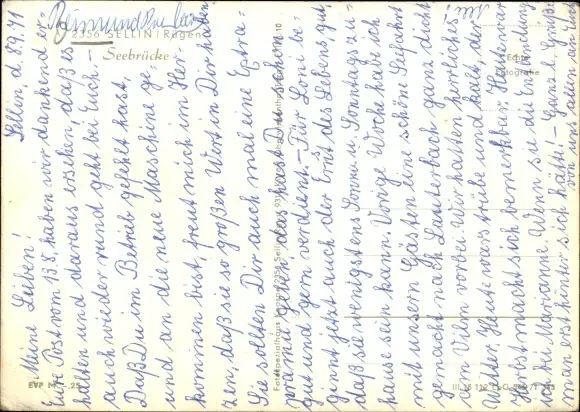 2356 SELLIN/Rügen
Seebrücke
Echte
Fotografie
EVP M -.25
Sellin, d. 8.9.71
Meine Lieben!
Eure Post vom 13.8. haben wir dankend er-
halten und daraus ersehen, daß es
auch wieder rund geht bei Euch.
Daß Du im Betrieb gefehlt hast
und an die neue Maschine ge-
kommen bist, freut mich im Her-
zen, daß sie so großen Wert in Dir haben.
Sie sollten Dir auch mal eine Extra-
prämie geben, das hast Du sicher
gut und gern verdient. - Für Loni be-
ginnt jetzt auch der Ernst des Lebens, gut,
daß sie wenigstens Sonn u. Sonntags zu-
hause sein kann. Vorige Woche habe ich
mit unsern Gästen eine schöne Seefahrt
gemacht nach Lauterbach ganz dicht
an Vilm vorbei. Wir hatten herrliches
Wetter. Heute wars trübe und kalt, der
Herbst macht sich bemerkbar. Heute war
Marianne. Wenn sie die Entbindung
man erst hinter sich hätte! - Ganz l. Grüße
von uns allen